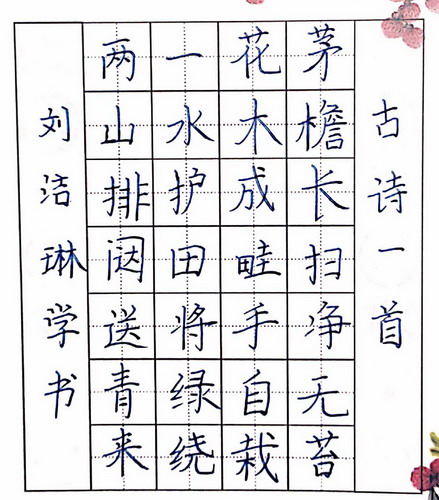 古诗一首
茅檐长扫净无苔
花木成畦手自栽
一水护田将绿绕
两山排闼送青来
刘洁琳学书